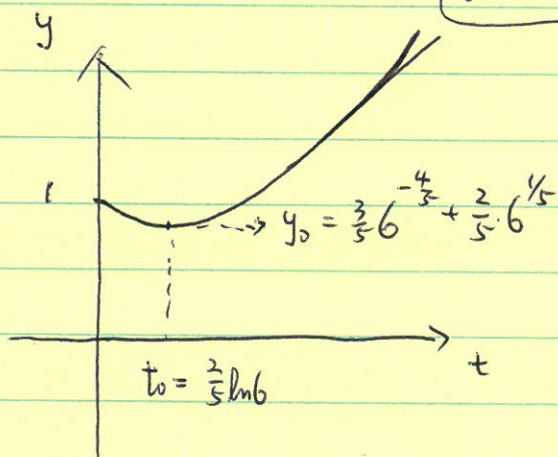 y
1
y₀ = 3/5 6^(-4/5) + 2/5 · 6^(1/5)
t₀ = 2/5 ln6
t